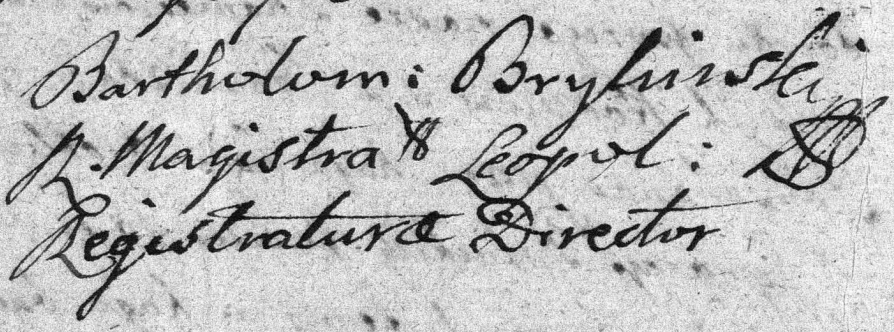 Bartholom: Brylinski
R. Magistratus Leopol:
Registraturæ Director